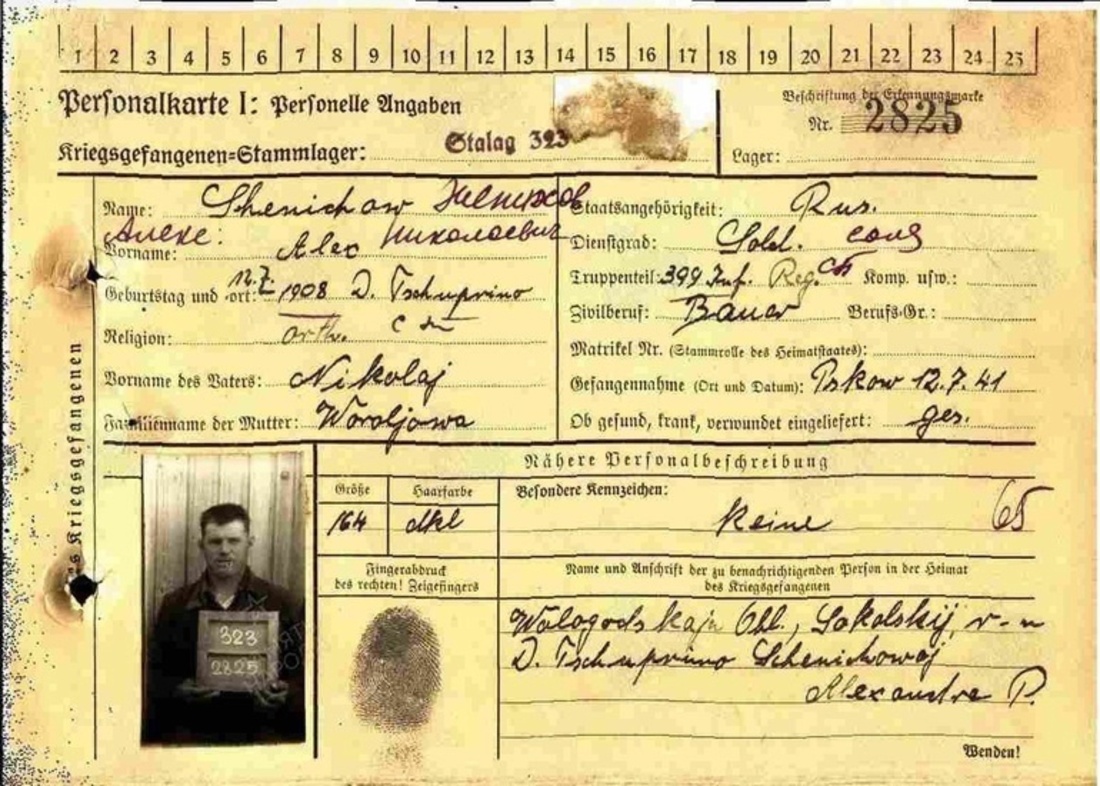 1 2 3 4 5 6 7 8 9 10 11 12 13 14 15 16 17 18 19 20 21 22 23 24 25
Personalkarte I: Personelle Angaben
Beschriftung der Erkennungsmarke
Nr. 2825
Kriegsgefangenen-Stammlager: Stalag 323
Lager:
Name: Shenichow
Алекс. Николаевич
Vorname: Alex
Geburtstag und -ort: 12.7. 1908 D. Tschuprino
Religion: orth.
Vorname des Vaters: Nikolaj
Familienname der Mutter:
Staatsangehörigkeit: Rus.
Dienstgrad: Sold.
Truppenteil: 399 Inf. Reg. Komp. usw.:
Zivilberuf: Bauer Berufs-Gr.:
Matrikel Nr. (Stammrolle des Heimatstaates):
Gefangennahme (Ort und Datum): Pskow 12.7.41
Ob gesund, krank, verwundet eingeliefert: ges.
Kriegsgefangenen
Nähere Personalbeschreibung
Größe Haarfarbe Besondere Kennzeichen:
164 dkl keine 65
Fingerabdruck
des rechten! Zeigefingers
Name und Anschrift der zu benachrichtigenden Person in der Heimat
des Kriegsgefangenen
Wologodskaja Obl., Sokolskij r-n
D. Tschuprino Schenichowaj
Alexandra P.
323
2825
Wenden!